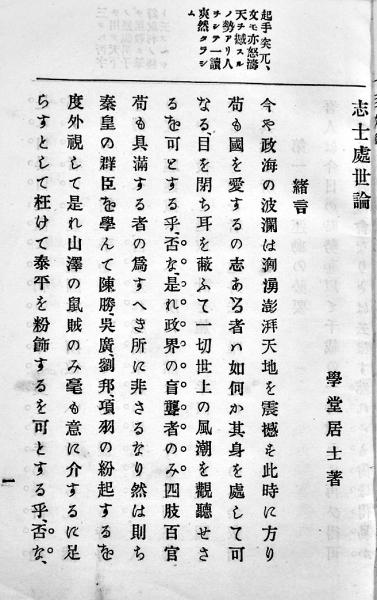 志士處世論
學堂居士著
緒言
今や政海の波瀾は洶湧澎湃天地を震撼を此時に方り
苟も國を愛するの志ある者ハ如何か其身を處して可
なる、目を閉ち耳を蔽ふて一切世上の風潮を觀聽せさ
るを可とする乎、否な、是れ政界の盲聾者のみ四肢百官
苟も具滿する者の爲すへき所に非さるなり然は則ち
秦皇の群臣を學んて陳勝、吳廣、劉邦、項羽の紛起するを
度外視して是れ山澤の鼠賊のみ毫も意に介するに足
らすとして枉けて泰平を粉飾するを可とする乎、否な、
起手突兀、
文モ亦怒濤
天ヲ撼スル
ノ勢アリ人
ヲシテ一讀
爽然タラシ
ム
一